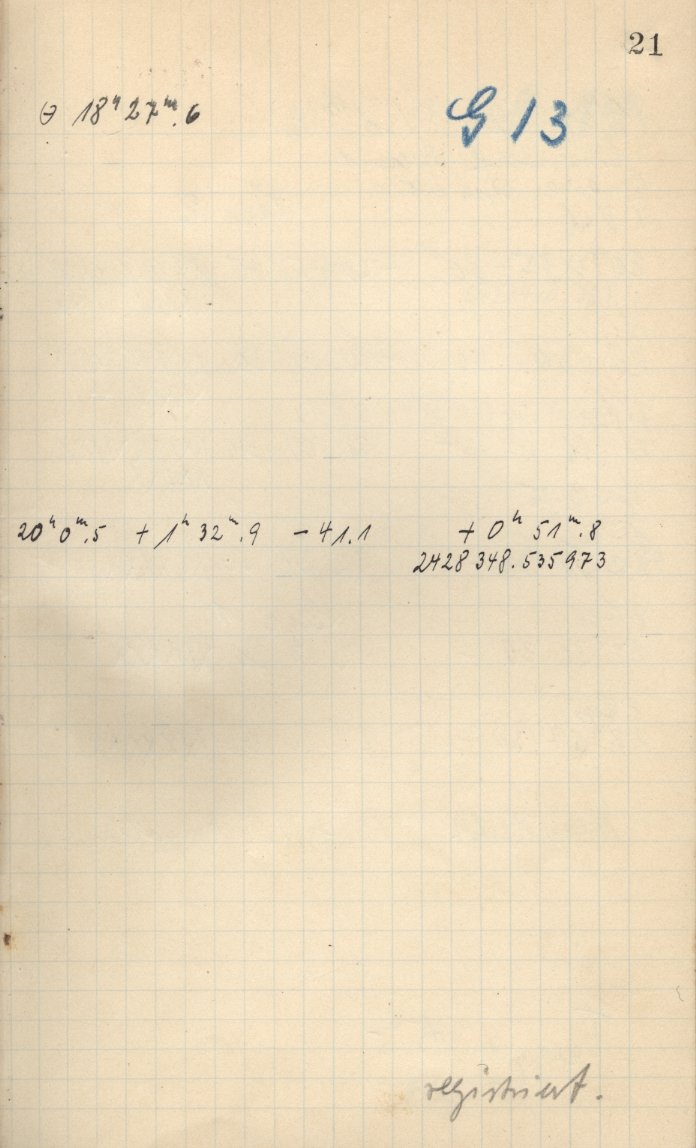 21
Θ 18ʰ27ᵐ.6
G 13
20ʰ0ᵐ.5 + 1ʰ32ᵐ.9 - 41.1 + 0ʰ51ᵐ.8
2428348.535973
registriert.